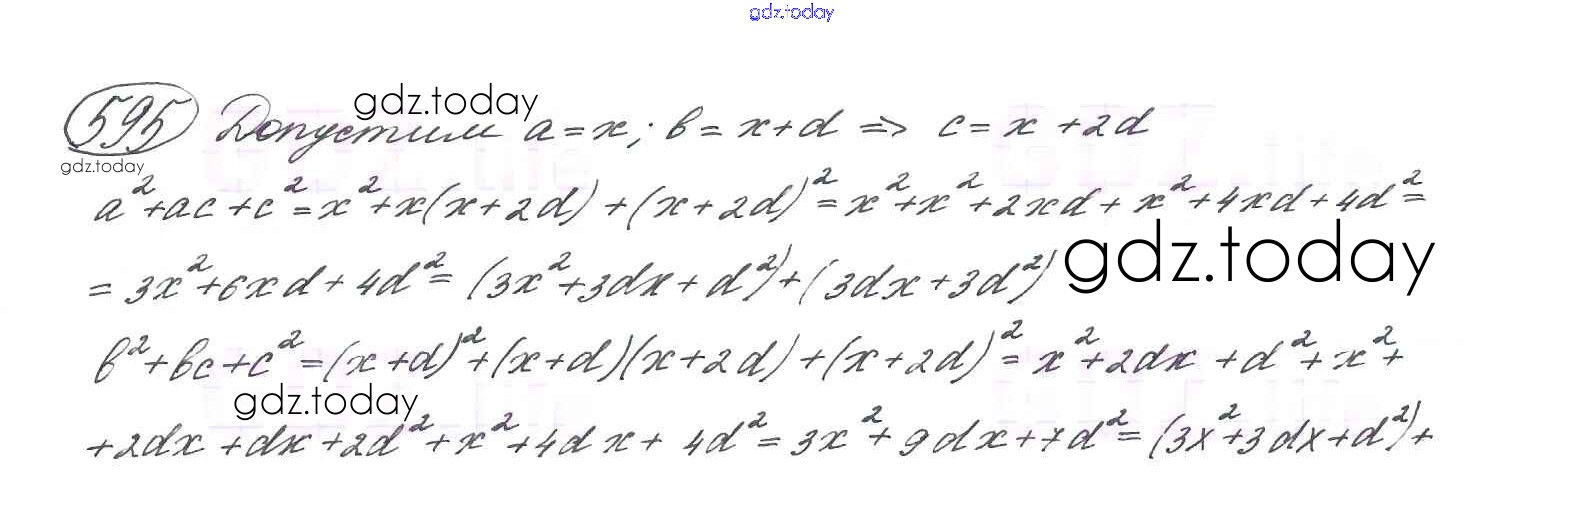 gdz.today
595 Допустим a = x; b = x+d => c = x + 2d
gdz.today
gdz.today
a²+ac+c²=x²+x(x+2d)+(x+2d)²=x²+x²+2xd+x²+4xd+4d²=
=3x²+6xd+4d²=(3x²+3dx+d²)+(3dx+3d²)
gdz.today
b²+bc+c²=(x+d)²+(x+d)(x+2d)+(x+2d)²=x²+2dx+d²+x²+
gdz.today
+2dx+dx+2d²+x²+4dx+4d²=3x²+9dx+7d²=(3x²+3dx+d²)+